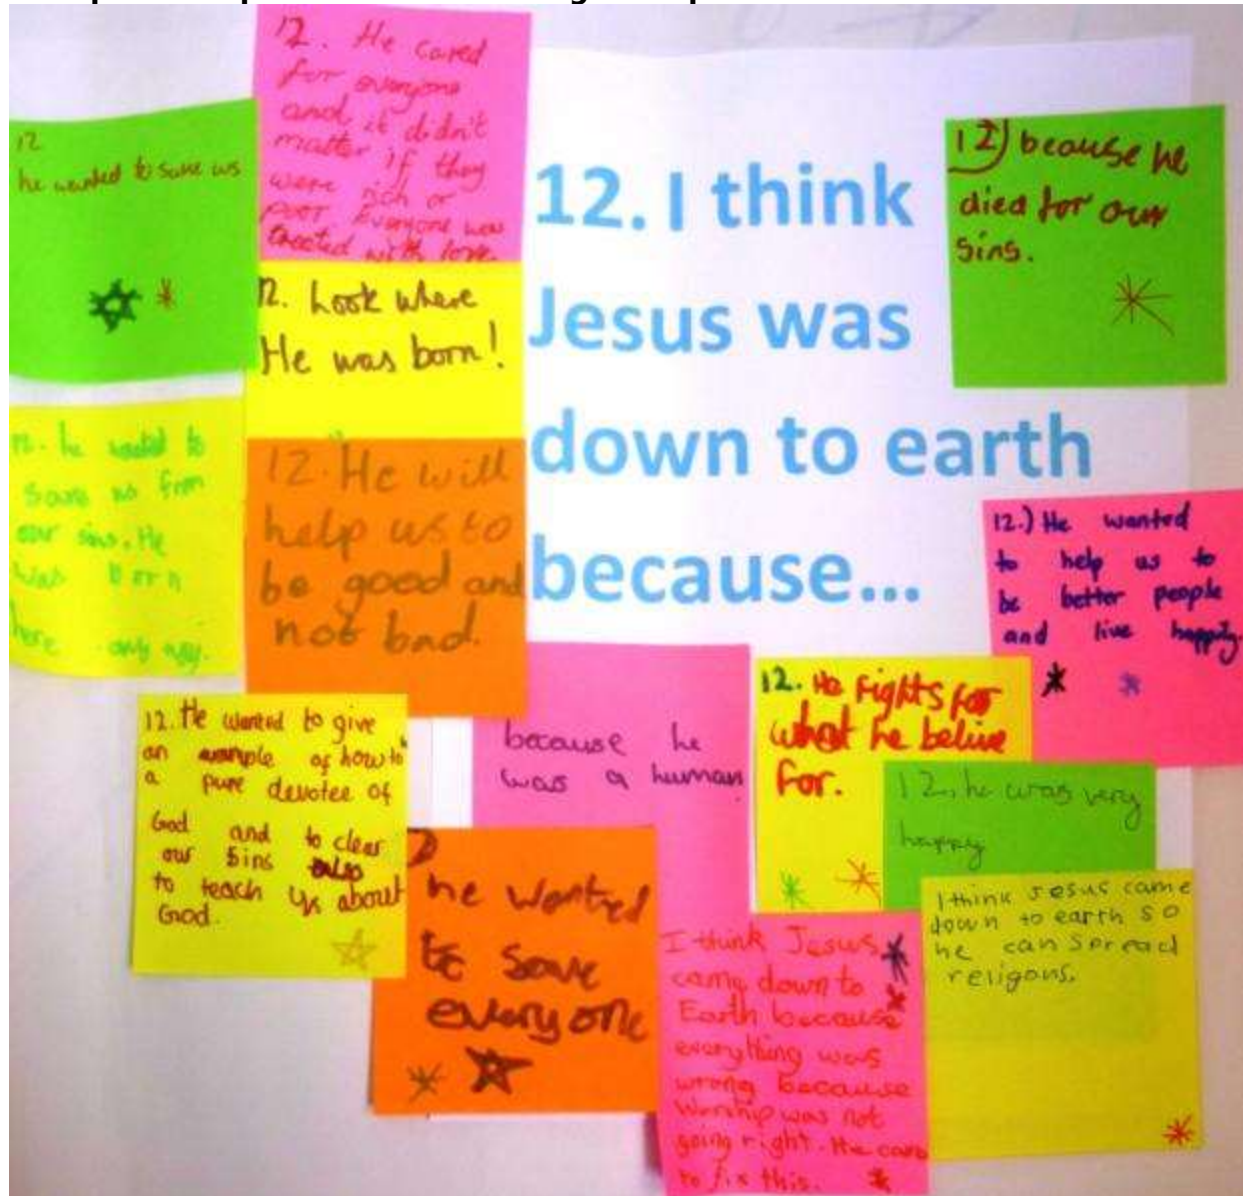 12. I think
Jesus was
down to earth
because...
12
he wanted to save us
12. He cared
for everyone
and it didn't
matter if they
were rich or
poor. Everyone was
treated with love.
12. Look where
He was born!
12) because he
died for our
sins.
12. he wanted to
save us from
our sins. He
was born
here
12. He will
help us to
be good and
not bad.
12.) He wanted
to help us to
be better people
and live happily.
12. He wanted to give
an example of how to
a pure devotee of
God and to clear
our Sins also
to teach us about
God.
because he
was a human
12. He fights for
what he belive
for.
12. he was very
happy
he wanted
to save
everyone
I think Jesus
came down to
Earth because
everything was
wrong because
Worship was not
going right. He came
to fix this.
I think Jesus came
down to earth so
he can spread
religons.